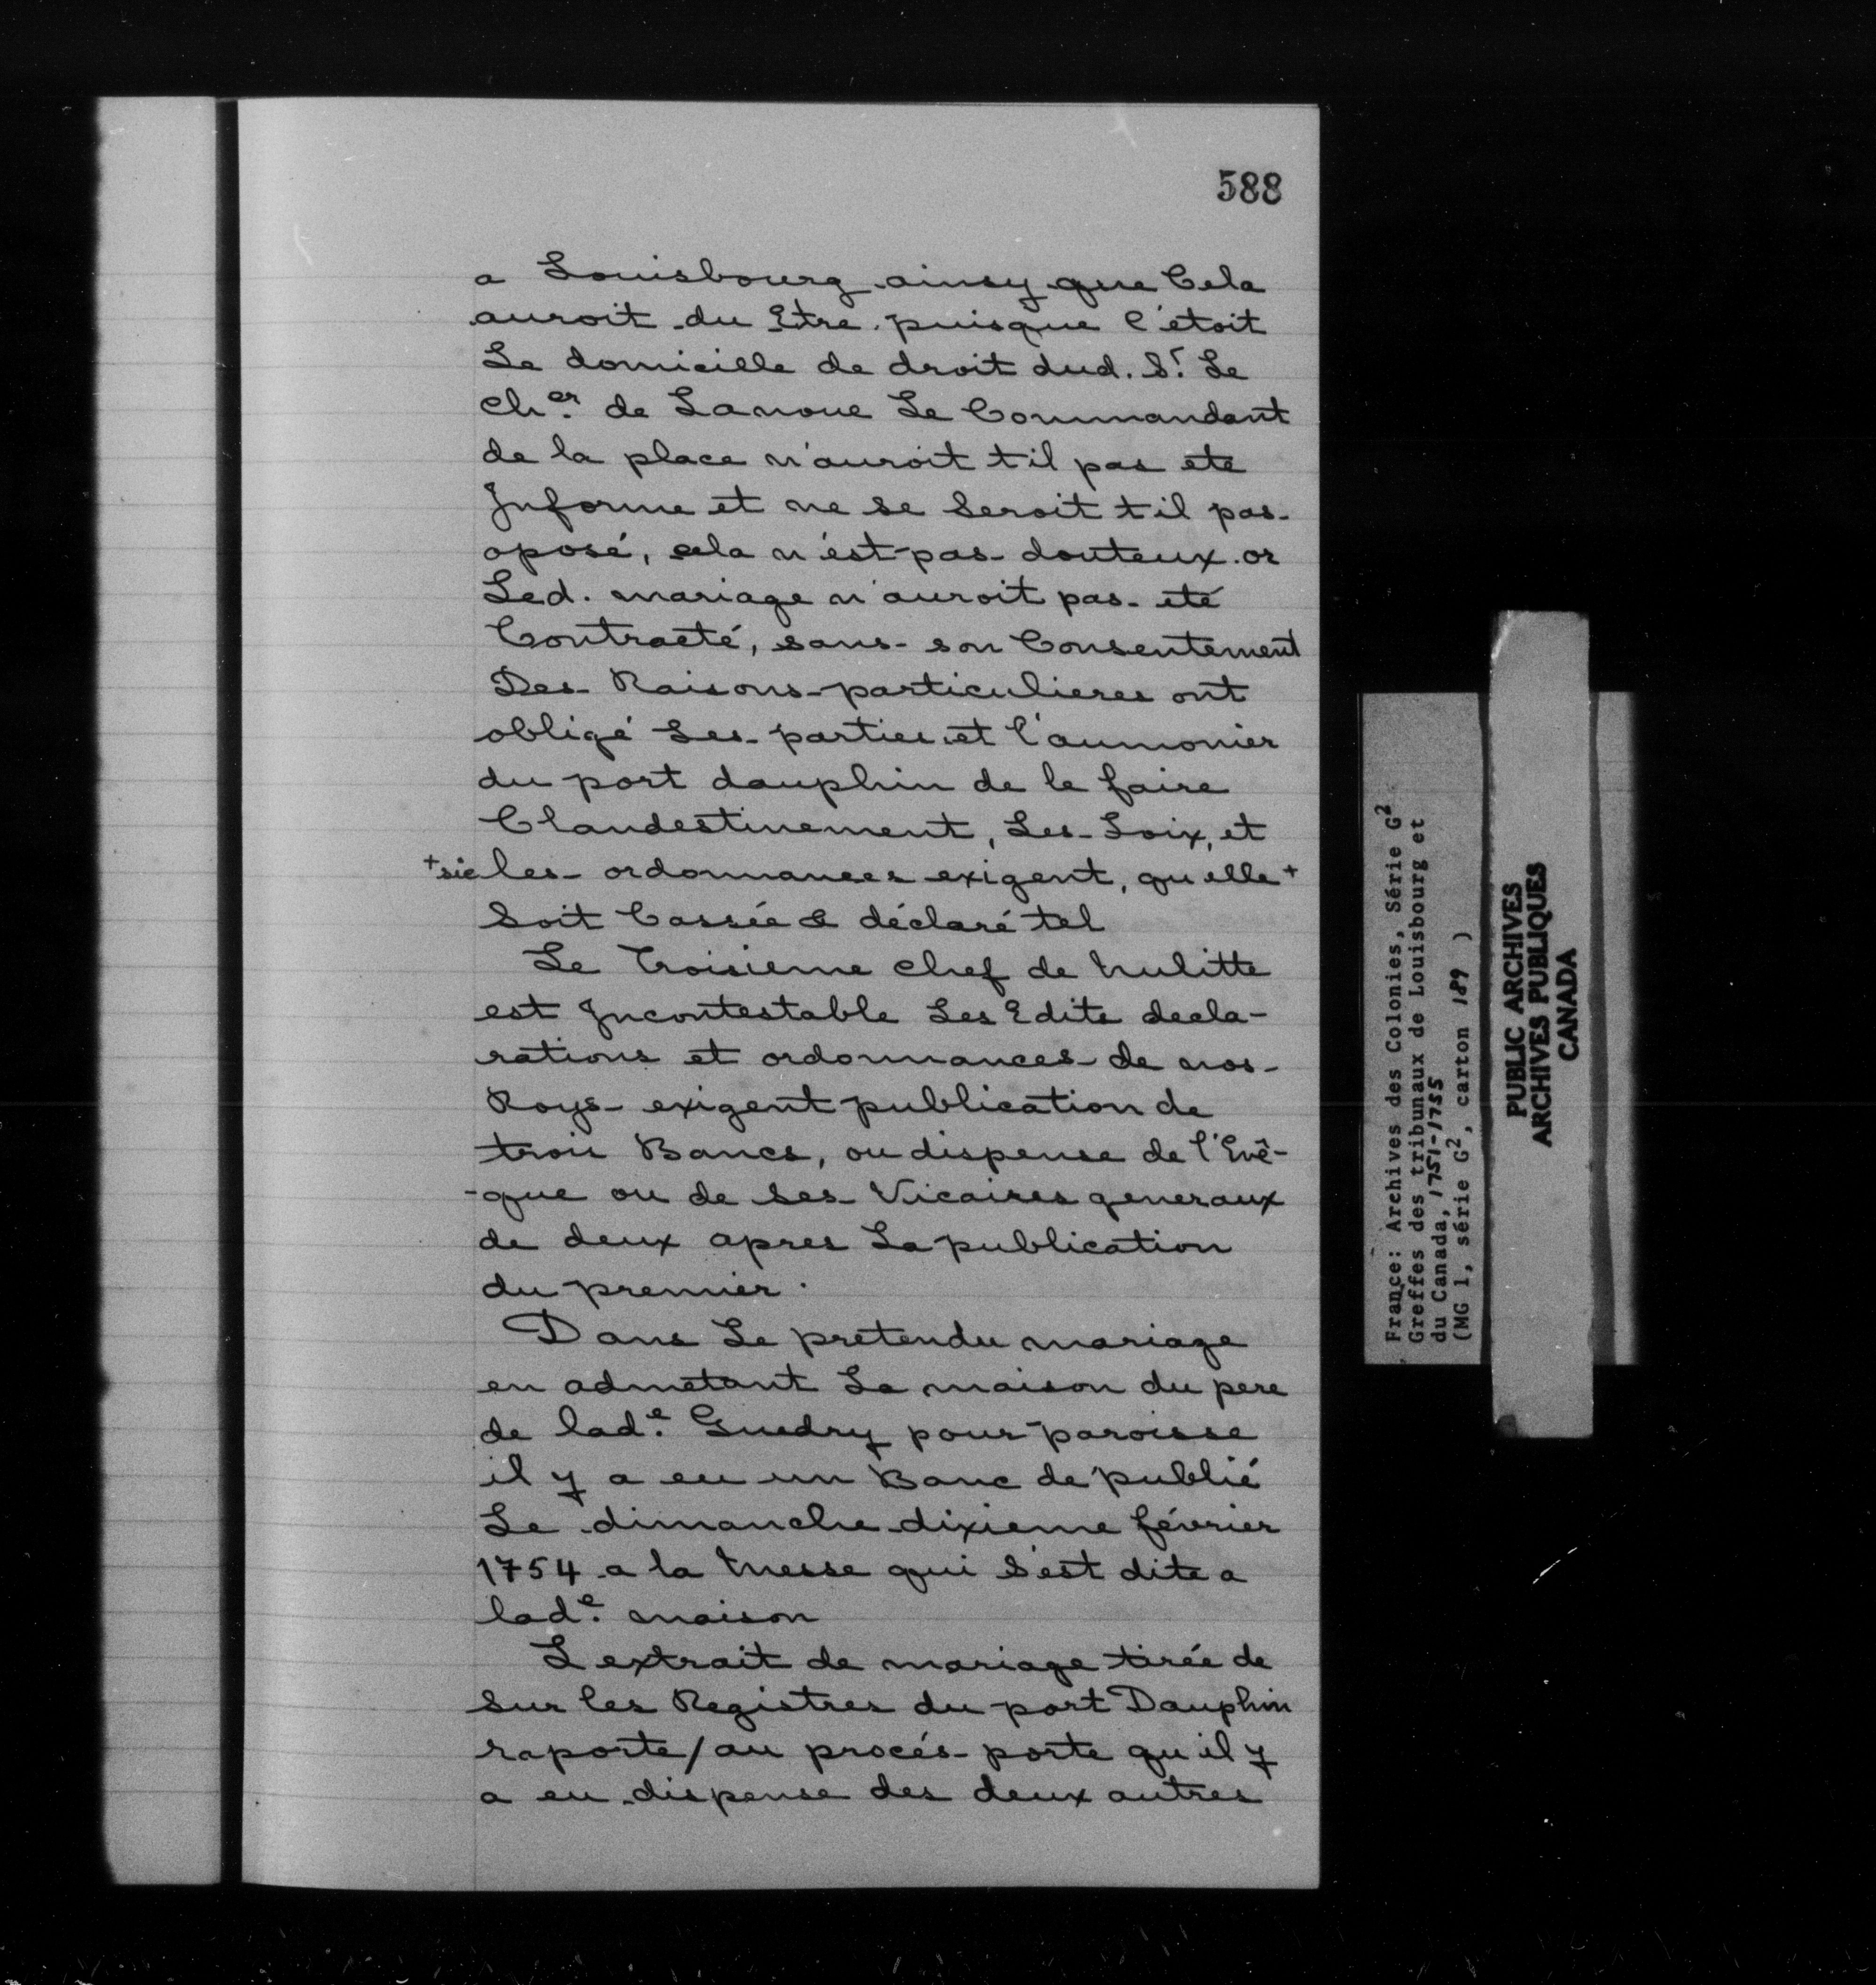 588
a Louisbourg ainsy que Cela
auroit du Etre puisque C'étoit
Le domicille de droit dud. Sr. Le
cher. de Lanoue Le Commandant
de la place n'auroit t il pas ete
Informe et ne se Seroit t il pas
oposé, cela n'ést pas douteux. or
Led. mariage n'auroit pas été
Contracté, sans son Consentement
Des Raisons particulieres ont
obligé Les parties et l'aumonier
du port dauphin de le faire
Clandestinement, Les Loix, et
+sic les ordonnances exigent, quelle+
Soit Cassée & déclaré tel
Le Troisieme chef de Nulitte
est Incontestable Les Edits decla-
rations et ordonnances de nos
Roys exigent publication de
trois Bancs, ou dispense de l'Evê-
-que ou de ses Vicaires generaux
de deux apres La publication
du premier.
Dans Le pretendu mariage
en admetant La maison du pere
de lade. Guedry pour paroisse
il y a eu un Banc de publié
Le dimanche dixieme février
1754 a la Messe qui S'est dite a
lade. maison
L extrait de mariage tirée de
Sur les Registres du port Dauphin
raporte/au procés porte qu il y
a eu dispense des deux autres
France: Archives des Colonies, Série G2
Greffes des tribunaux de Louisbourg et
du Canada, 1751-1755
(MG 1, série G2, carton 189 )
PUBLIC ARCHIVES
ARCHIVES PUBLIQUES
CANADA